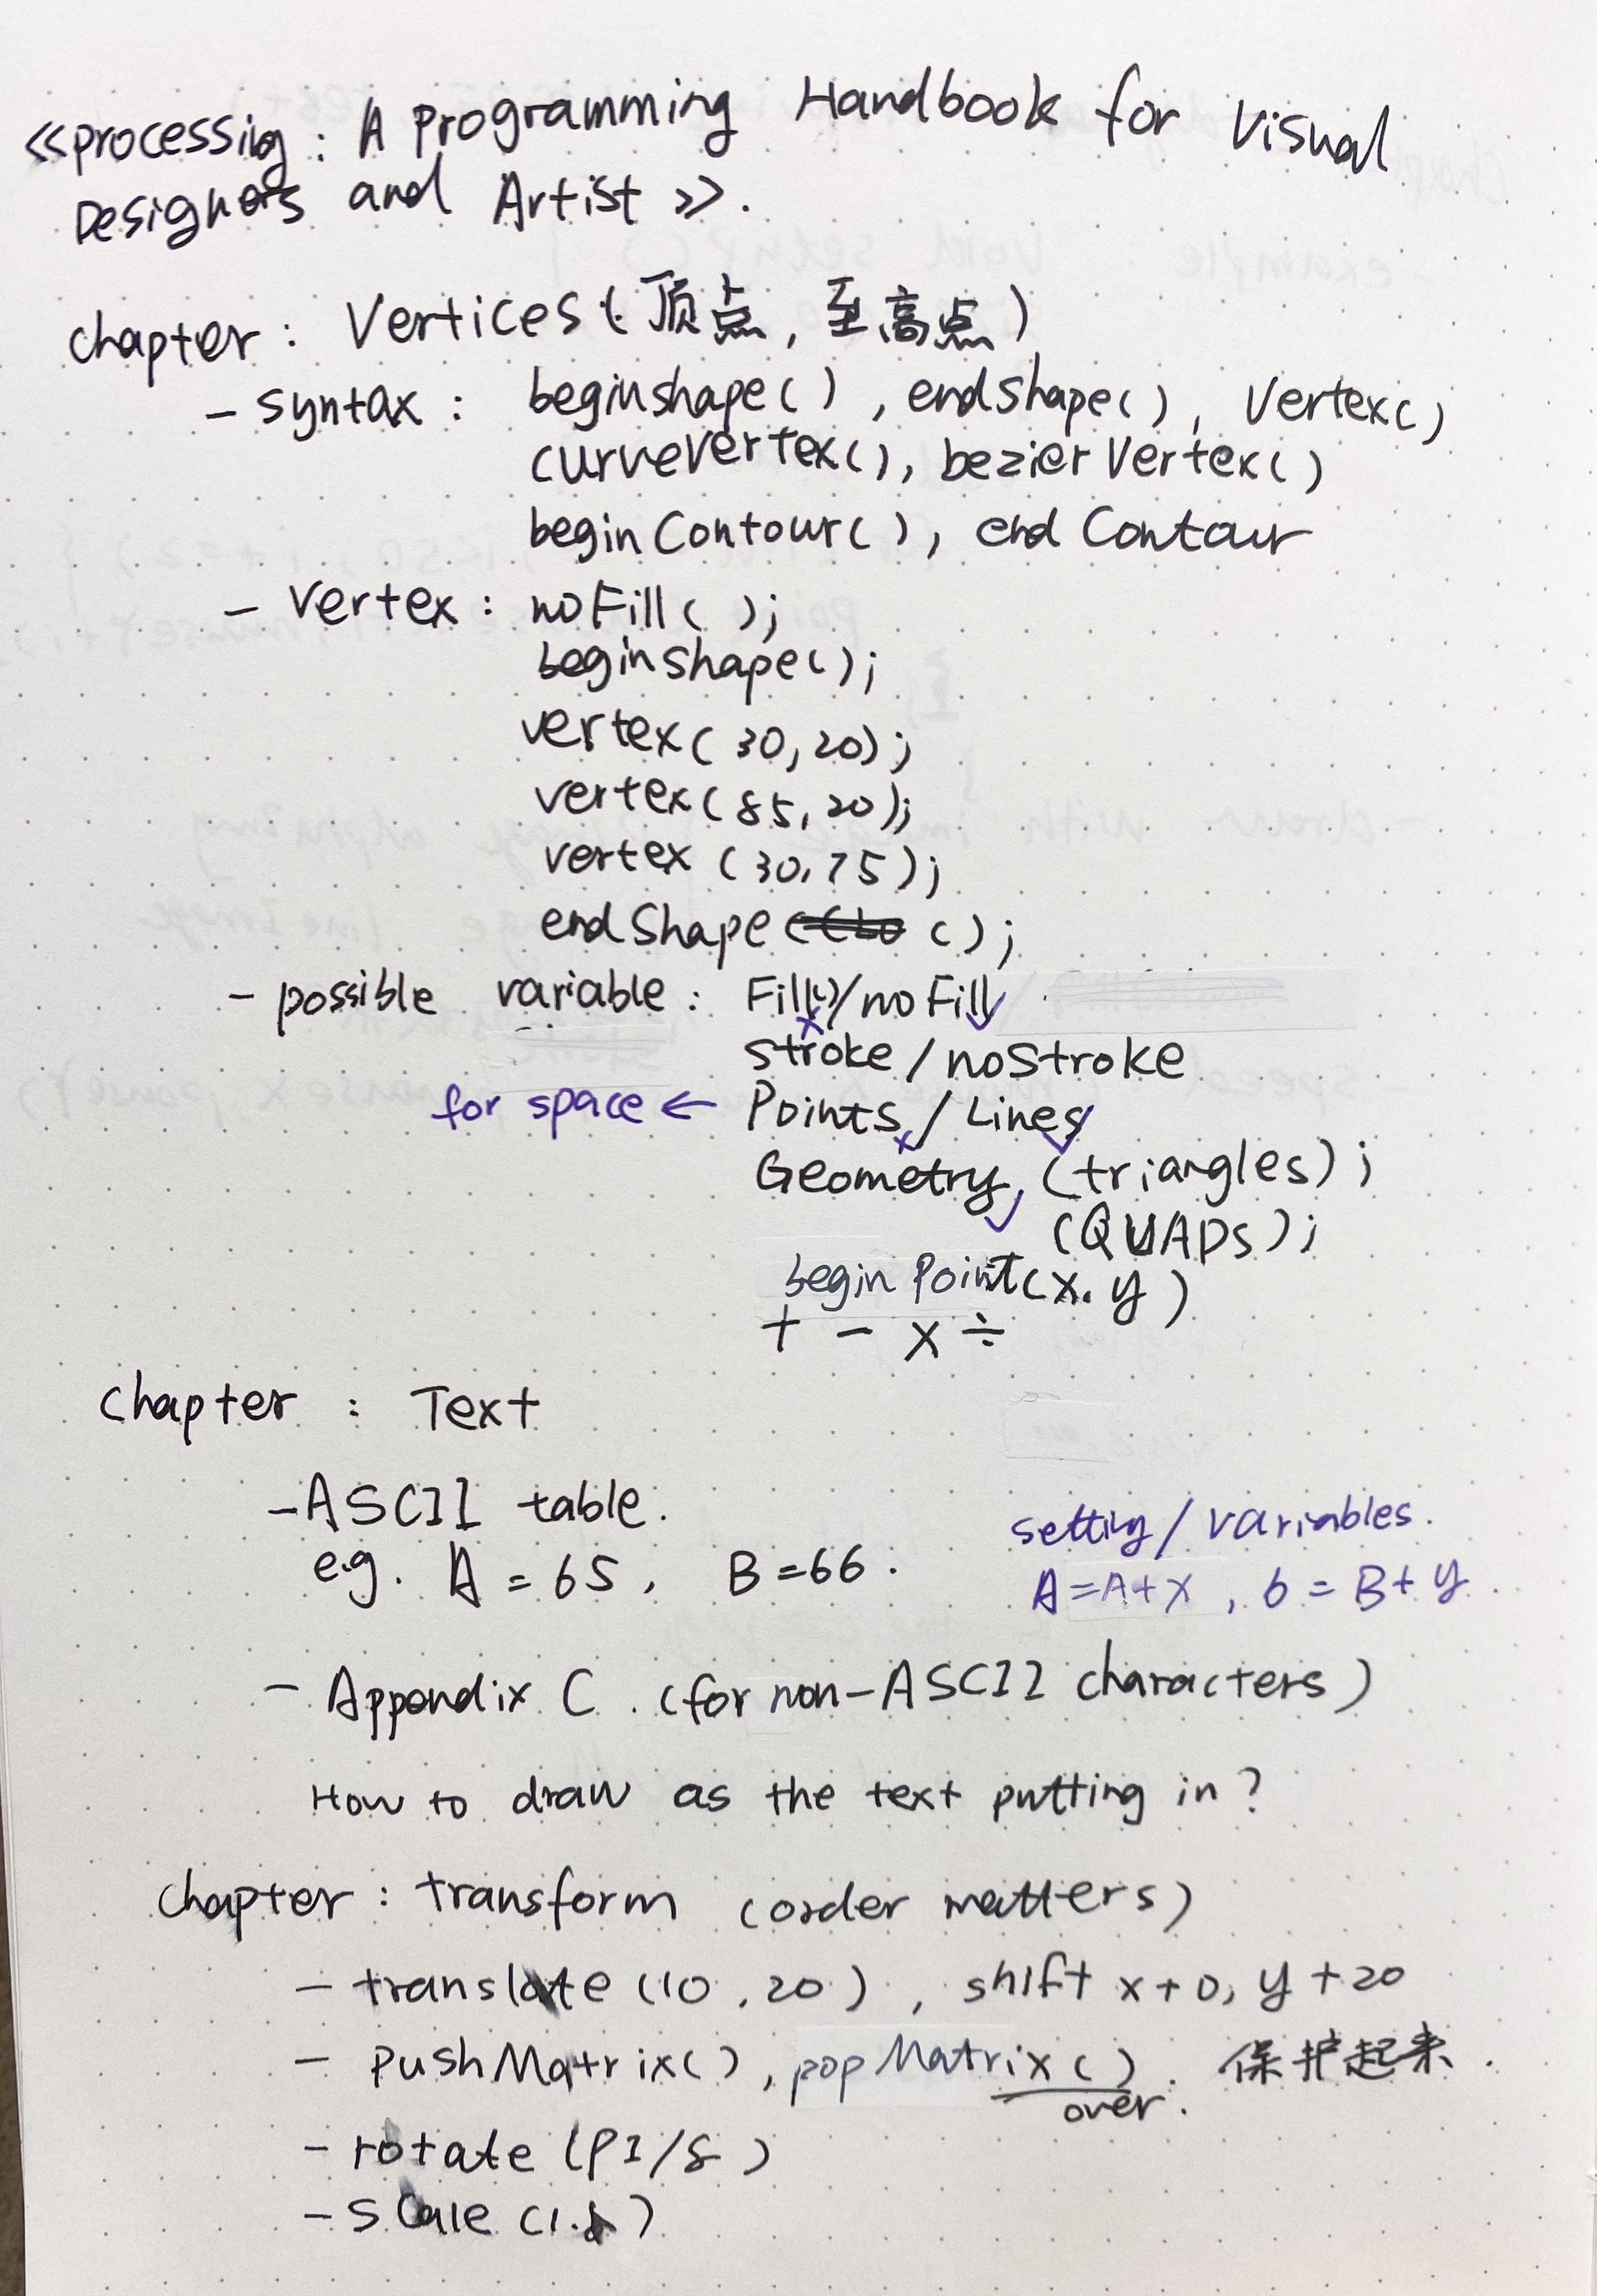 <<processing : A Programming Handbook for Visual
Designers and Artist >>.
chapter : Vertices ( 顶点 , 至高点 )
- syntax : beginshape( ) , endshape( ) , Vertex( )
curveVertex( ), bezierVertex( )
begin Contour( ) , end Contour
- Vertex : noFill( );
beginshape( );
vertex( 30, 20) ;
vertex( 85, 20);
vertex (30, 75);
endShape ( ) ;
- possible variable : Fill()/noFill
stroke / noStroke
for space ← Points / Lines
Geometry (triangles) ;
(QUADs) ;
begin Point(x. y )
+ - × ÷
chapter : Text
- ASCII table.
e.g. A = 65 , B = 66 .
setting / variables .
A = A + x , b = B + y .
- Appendix C . (for non-ASCII characters)
How to draw as the text putting in ?
chapter : transform (order matters)
- translate (10 , 20 ) , shift x + 0, y + 20
- pushMatrix( ) , popMatrix ( ) . 保护起来 .
over .
- rotate (PI/8 )
- scale (1. )